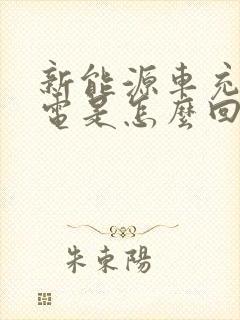 新能源車充
電是怎麼回
朱東陽